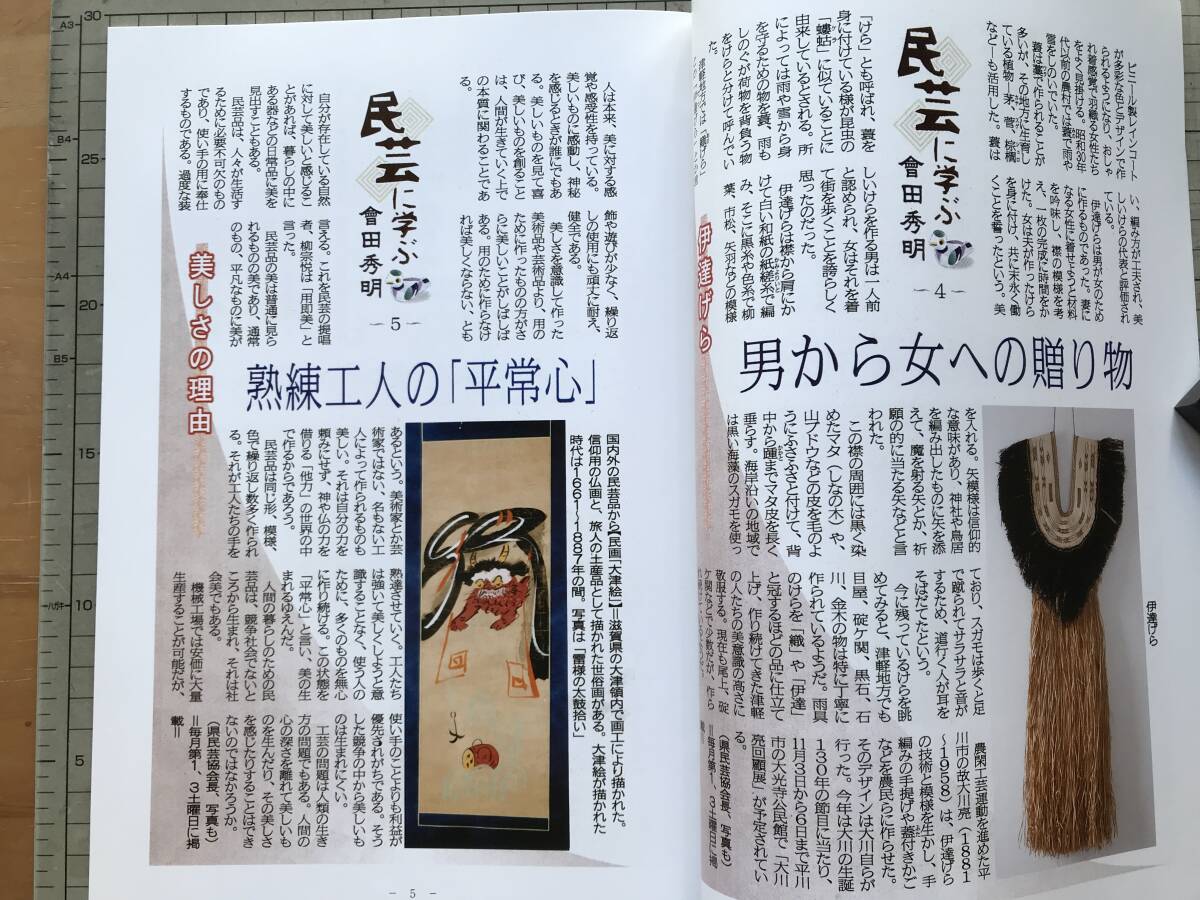 民芸に学ぶ
會田秀明
-4-
伊達げら
男から女への贈り物
ビニール製レインコート
が多彩な色とデザインで作
られるようになり、おしゃ
れ着感覚で羽織る女性たち
をよく見掛ける。昭和30年
代以前の農村では蓑で雨や
雪をしのいでいた。
蓑は藁で作られることが
多いが、その地方に生育し
ている植物―茅、菅、棕櫚
など―も活用した。蓑は
「けら」とも呼ばれ、蓑を
身に付けている様が昆虫の
「螻蛄」に似ていることに
由来しているとされる。所
によっては雨や雪から身
を守るための物を蓑、雨も
しのぐが荷物を背負う物
をけらと分けて呼んでい
た。
津軽地方では「織げら」
い、編み方が工夫され、美
しいけらの代表と評価され
ている。
伊達げらは男が女のため
に作るものであった。妻に
なる女性に着せようと材料
を吟味し、襟の模様を考
え、一枚の完成に時間をか
けた。女は夫が作ったけら
を身に付け、共に末永く働
くことを誓ったという。美
しいけらを作る男は一人前
と認められ、女はそれを着
て街を歩くことを誇らしく
思ったのだった。
伊達げらは襟から肩にか
けて白い和紙の紙縒糸で編
み、そこに黒糸や色糸で柳
葉、市松、矢羽などの模様
を入れる。矢模様は信仰的
な意味があり、神社や鳥居
を編み出したものに矢を添
えて、魔を射る矢とか、祈
願の的に当たる矢などと言
われた。
この襟の周囲には黒く染
めたマダ(しなの木)や、
山ブドウなどの皮を毛のよ
うにふさふさと付けて、背
中から踵までマダ皮を長く
垂らす。海岸沿いの地域で
は黒い海藻のスガモを使っ
ており、スガモは歩くと足
で蹴られてサラサラと音が
するため、道行く人が耳を
そばだてたという。
今に残っているけらを眺
めてみると、津軽地方でも
目屋、碇ケ関、黒石、石
川、金木の物は特に丁寧に
作られているようだ。雨具
のけらを「織」や「伊達」
と冠するほどの品に仕立て
上げ、作り続けてきた津軽
の人たちの美意識の高さに
敬服する。現在も尾上、碇
ケ関などで少数だが、作ら
農閑工芸運動を進めた平
川市の故大川亮(1881
~1958)は、伊達げら
の技術と模様を生かし、手
編みの手提げや蓋付きかご
などを農民らに作らせた。
そのデザインは大川自らが
行った。今年は大川の生誕
130年の節目に当たり、
11月3日から6日まで平川
市の大光寺公民館で「大川
亮回顧展」が予定されてい
る。
(県民芸協会長、写真も)
=毎月第1、3土曜日に掲
載=
伊達げら
民芸に学ぶ
會田秀明
-5-
美しさの理由
熟練工人の「平常心」
人は本来、美に対する感
覚や感受性を持っている。
美しいものに感動し、神秘
を感じるときが誰にでもあ
る。美しいものを見て喜
び、美しいものを創ること
は、人間が生きていく上で
の本質に関わることであ
る。
自分が存在している自然
に対して美しいと感じるこ
とがあれば、暮らしの中に
ある器などの日常品に美を
見出すこともある。
民芸品は、人々が生活す
るために必要不可欠のもの
であり、使い手の用に奉仕
するものである。過度な装
飾や遊びが少なく、繰り返
しの使用にも頑丈に耐え、
健全である。
美しさを意識して作った
美術品や芸術品より、用の
ために作ったものの方がさ
らに美しいことがしばしば
ある。用のために作らなけ
れば美しくならない、とも
言える。これを民芸の提唱
者、柳宗悦は「用即美」と
言った。
民芸品の美は普通に見ら
れるものの美であり、通常
のもの、平凡なものに美が
あるという。美術家とか芸
術家ではない、名もない工
人によって作られるものも
美しい。それは自分の力を
頼みにせず、神や仏の力を
借りる「他力」の世界の中
で作るからであろう。
民芸品は同じ形、模様、
色で繰り返し数多く作られ
る。それが工人たちの手を
熟達させていく。工人たち
は強いて美しくしようと意
識することなく、使う人の
ために、多くのものを無心
に作り続ける。この状態を
「平常心」と言い、美の生
まれるゆえんだ。
人間の暮らしのための民
芸品は、競争社会でないと
ころから生まれ、それは社
会美でもある。
機械工場では安価に大量
生産することが可能だが、
使い手のことよりも利益が
優先されがちである。そう
した競争の中から美しいも
のは生まれにくい。
工芸の問題は人類の生き
方の問題でもある。人間の
心の深さを離れて美しいも
のを生んだり、その美しさ
を感じたりすることはでき
ないのではなかろうか。
(県民芸協会長、写真も)
=毎月第1、3土曜日に掲
載=
国内外の民芸品から【民画大津絵】=滋賀県の大津領内で画工により描かれた。
信仰用の仏画と、旅人の土産品として描かれた世俗画がある。大津絵が描かれた
時代は1661~1887年の間。写真は「雷様の太鼓拾い」
- 5 -
A3
30
B4
25
A4
20
B5
15
ハガキ
10
5